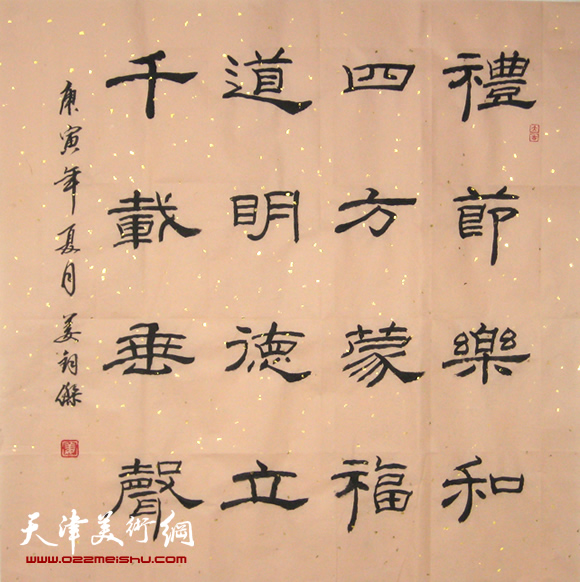 禮節樂和
四方蒙福
道明德立
千載垂聲
庚寅年夏月姜翔傑
天津美術網
www.022meishu.com